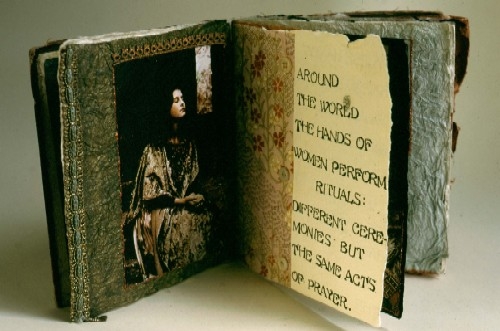 AROUND
THE WORLD
THE HANDS OF
WOMEN PERFORM
RITUALS:
DIFFERENT CERE-
MONIES BUT
THE SAME ACTS
OF PRAYER.